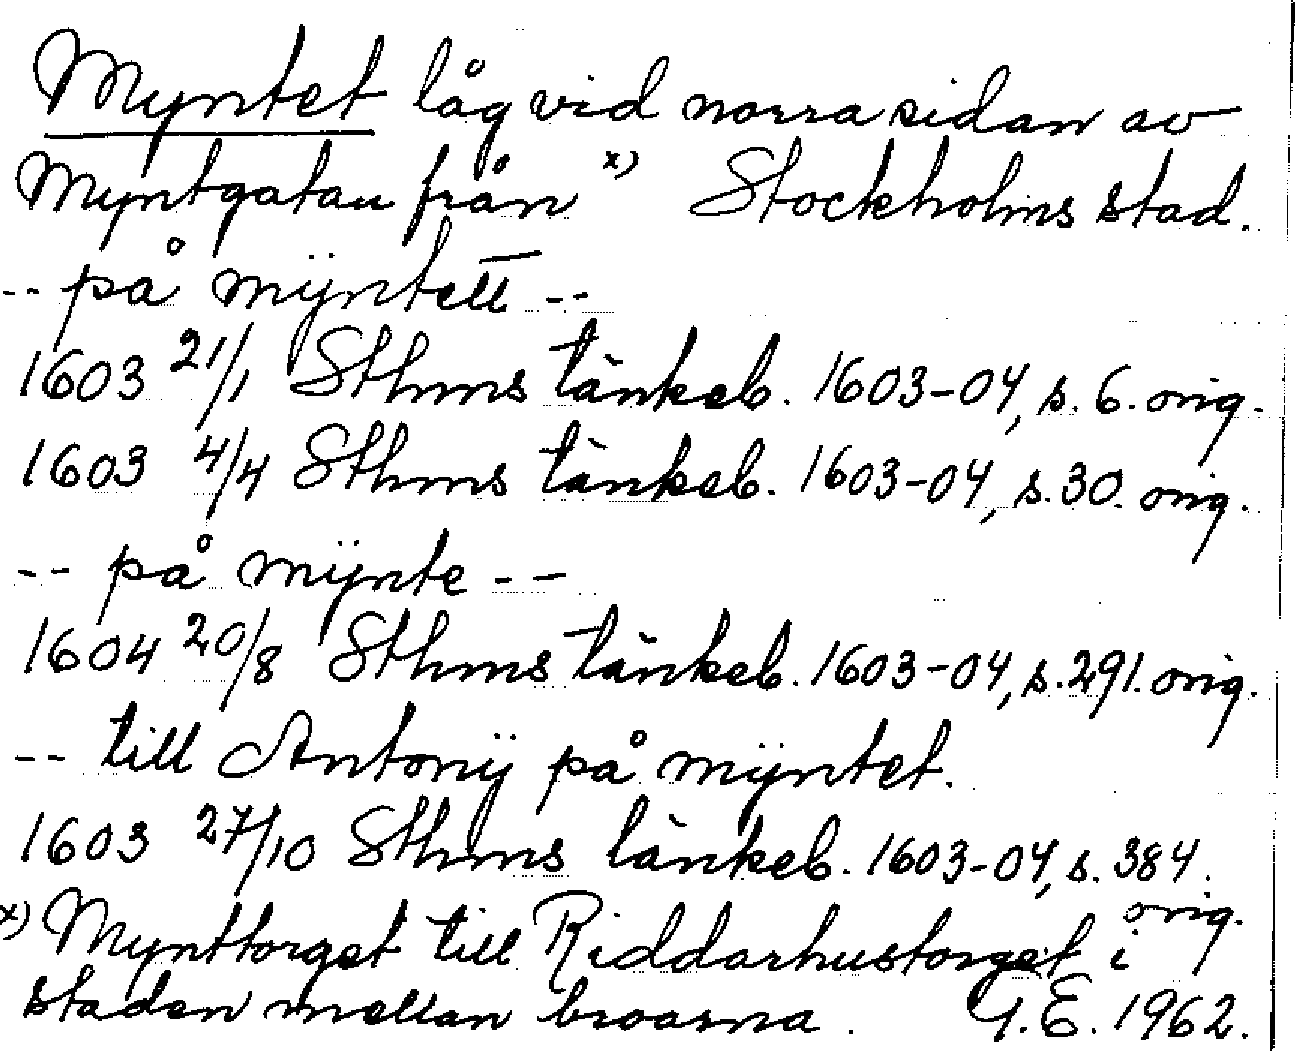 Myntet låg vid norra sidan av
Myntgatan från x) Stockholms stad.
-- på mÿntett --
1603 21/1 Sthms tänkeb. 1603-04, s. 6. orig.
1603 4/4 Sthms tänkeb. 1603-04, s. 30. orig.
-- på mÿnte --
1604 20/8 Sthms tänkeb. 1603-04, s. 291. orig.
-- till Antonÿ på mÿntet.
1603 27/10 Sthms tänkeb. 1603-04, s. 384.
orig.
x) Mynttorget till Riddarhustorget i
staden mellan broarna. G.E. 1962.